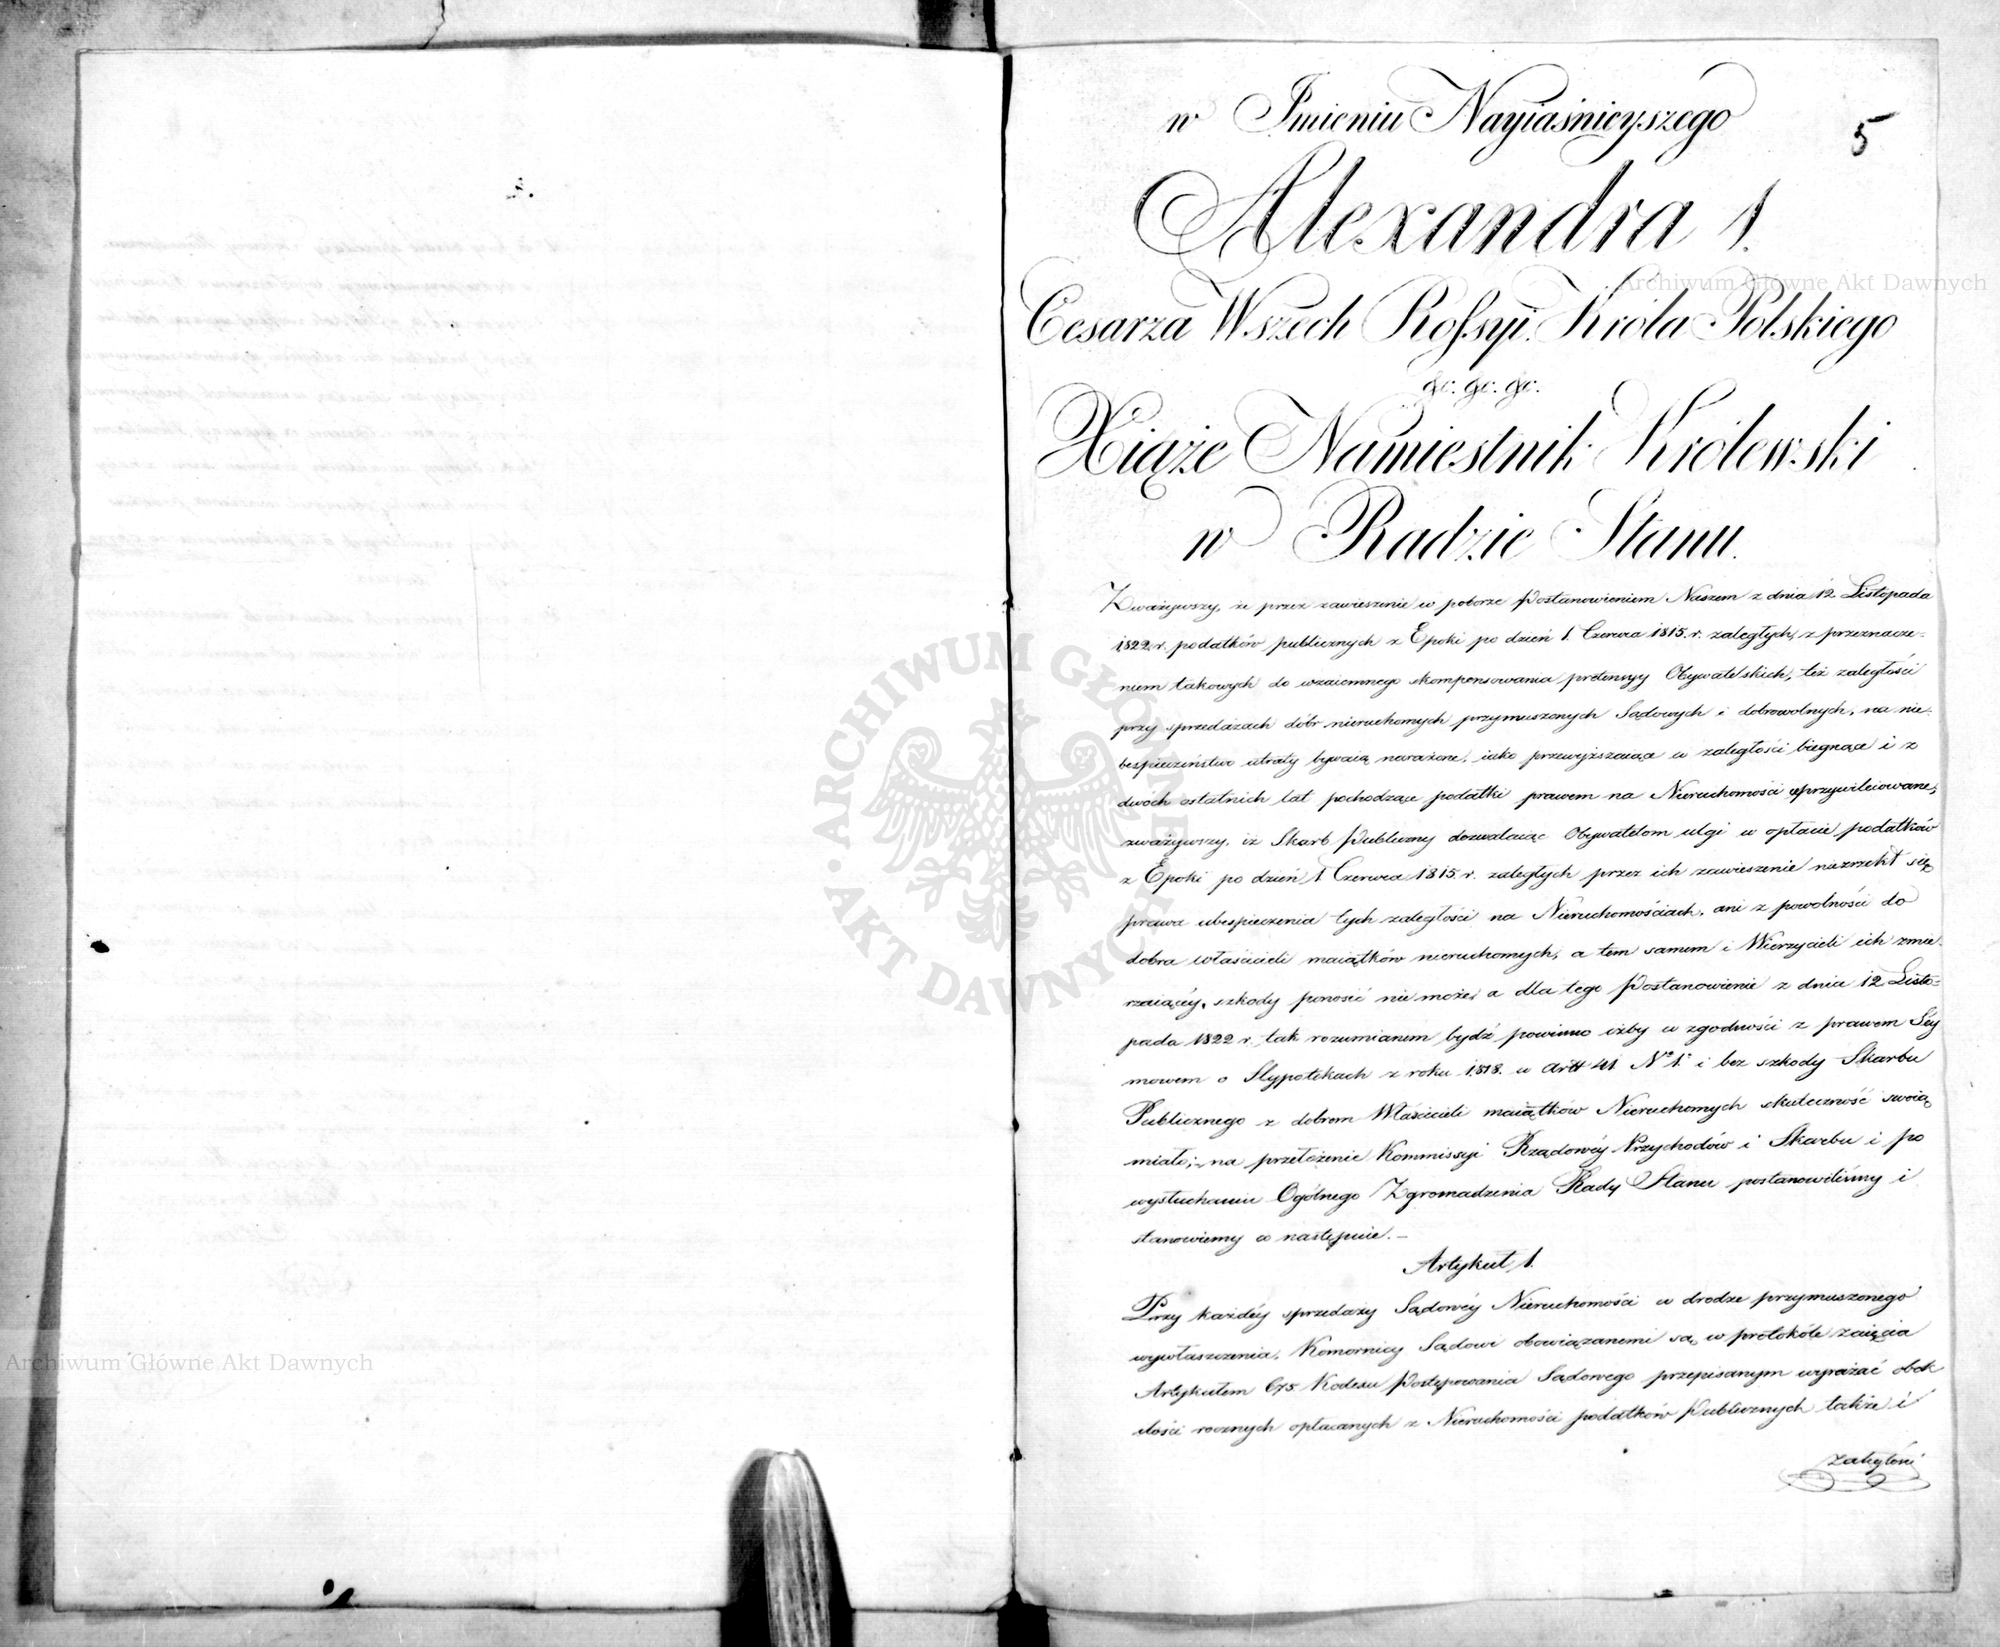 w Imieniu Nayiaśnieyszego
5
Alexandra 1.
Cesarza Wszech Rossyi. Króla Polskiego
&c. &c. &c.
Xiąże Namiestnik Królewski
w Radzie Stanu.
Zważywszy, że przez zawieszenie w poborze Postanowieniem Naszem z dnia 12 Listopada
1822 r. podatków publicznych z Epoki po dzień 1. Czerwca 1815. r. zaległych, z przeznacze-
niem takowych do wzaiemnego skompensowania pretensyy Obywatelskich, też zaległości
przy sprzedażach dóbr nieruchomych przymuszonych Sądowych i dobrowolnych, na nie-
bespieczeństwo utraty bywaią narażone, iako przewyższaiące w zaległości biegnące i z
dwóch ostatnich lat pochodzące podatki prawem na Nieruchomości uprzywileiowane,
zważywszy, iż Skarb Publiczny dozwalaiąc Obywatelom ulgi w opłacie podatków
z Epoki po dzień 1 Czerwca 1815. r. zaległych przez ich zawieszenie niezrzekł się
prawa ubespieczenia tych zaległości na Nieruchomościach, ani z powolności do
dobra właścicieli maiątków nieruchomych, a tem samem i Wierzycieli ich zmie-
rzaiącéy, szkody ponosić nie może, a dla tego Postanowienie z dnia 12 Listo-
pada 1822 r. tak rozumianem bydź powinno iżby w zgodności z prawem Sey
mowem o Hypotekach z roku 1818. w Artt 41 No 1o i bez szkody Skarbu
Publicznego z dobrem Właścicieli maiątków Nieruchomych skuteczność swoią
miało; na przełożenie Kommissyi Rządowéy Przychodów i Skarbu i po
wysłuchaniu Ogólnego Zgromadzenia Rady Stanu postanowiliśmy i
stanowiemy co następuie. —
Artykuł 1.
Przy każdéy sprzedaży Sądowéy Nieruchomości w drodze przymuszonego
wywłaszczenia, Komornicy Sądowi obowiązanemi są, w protokóle zaięcia
Artykułem 675 Kodexu Postępowania Sądowego przepisanym wyrażać obok
ilości rocznych opłacanych z Nieruchomości podatków Publicznych także i
zaległości
Archiwum Główne Akt Dawnych
Archiwum Główne Akt Dawnych
ARCHIWUM GŁÓWNE AKT DAWNYCH